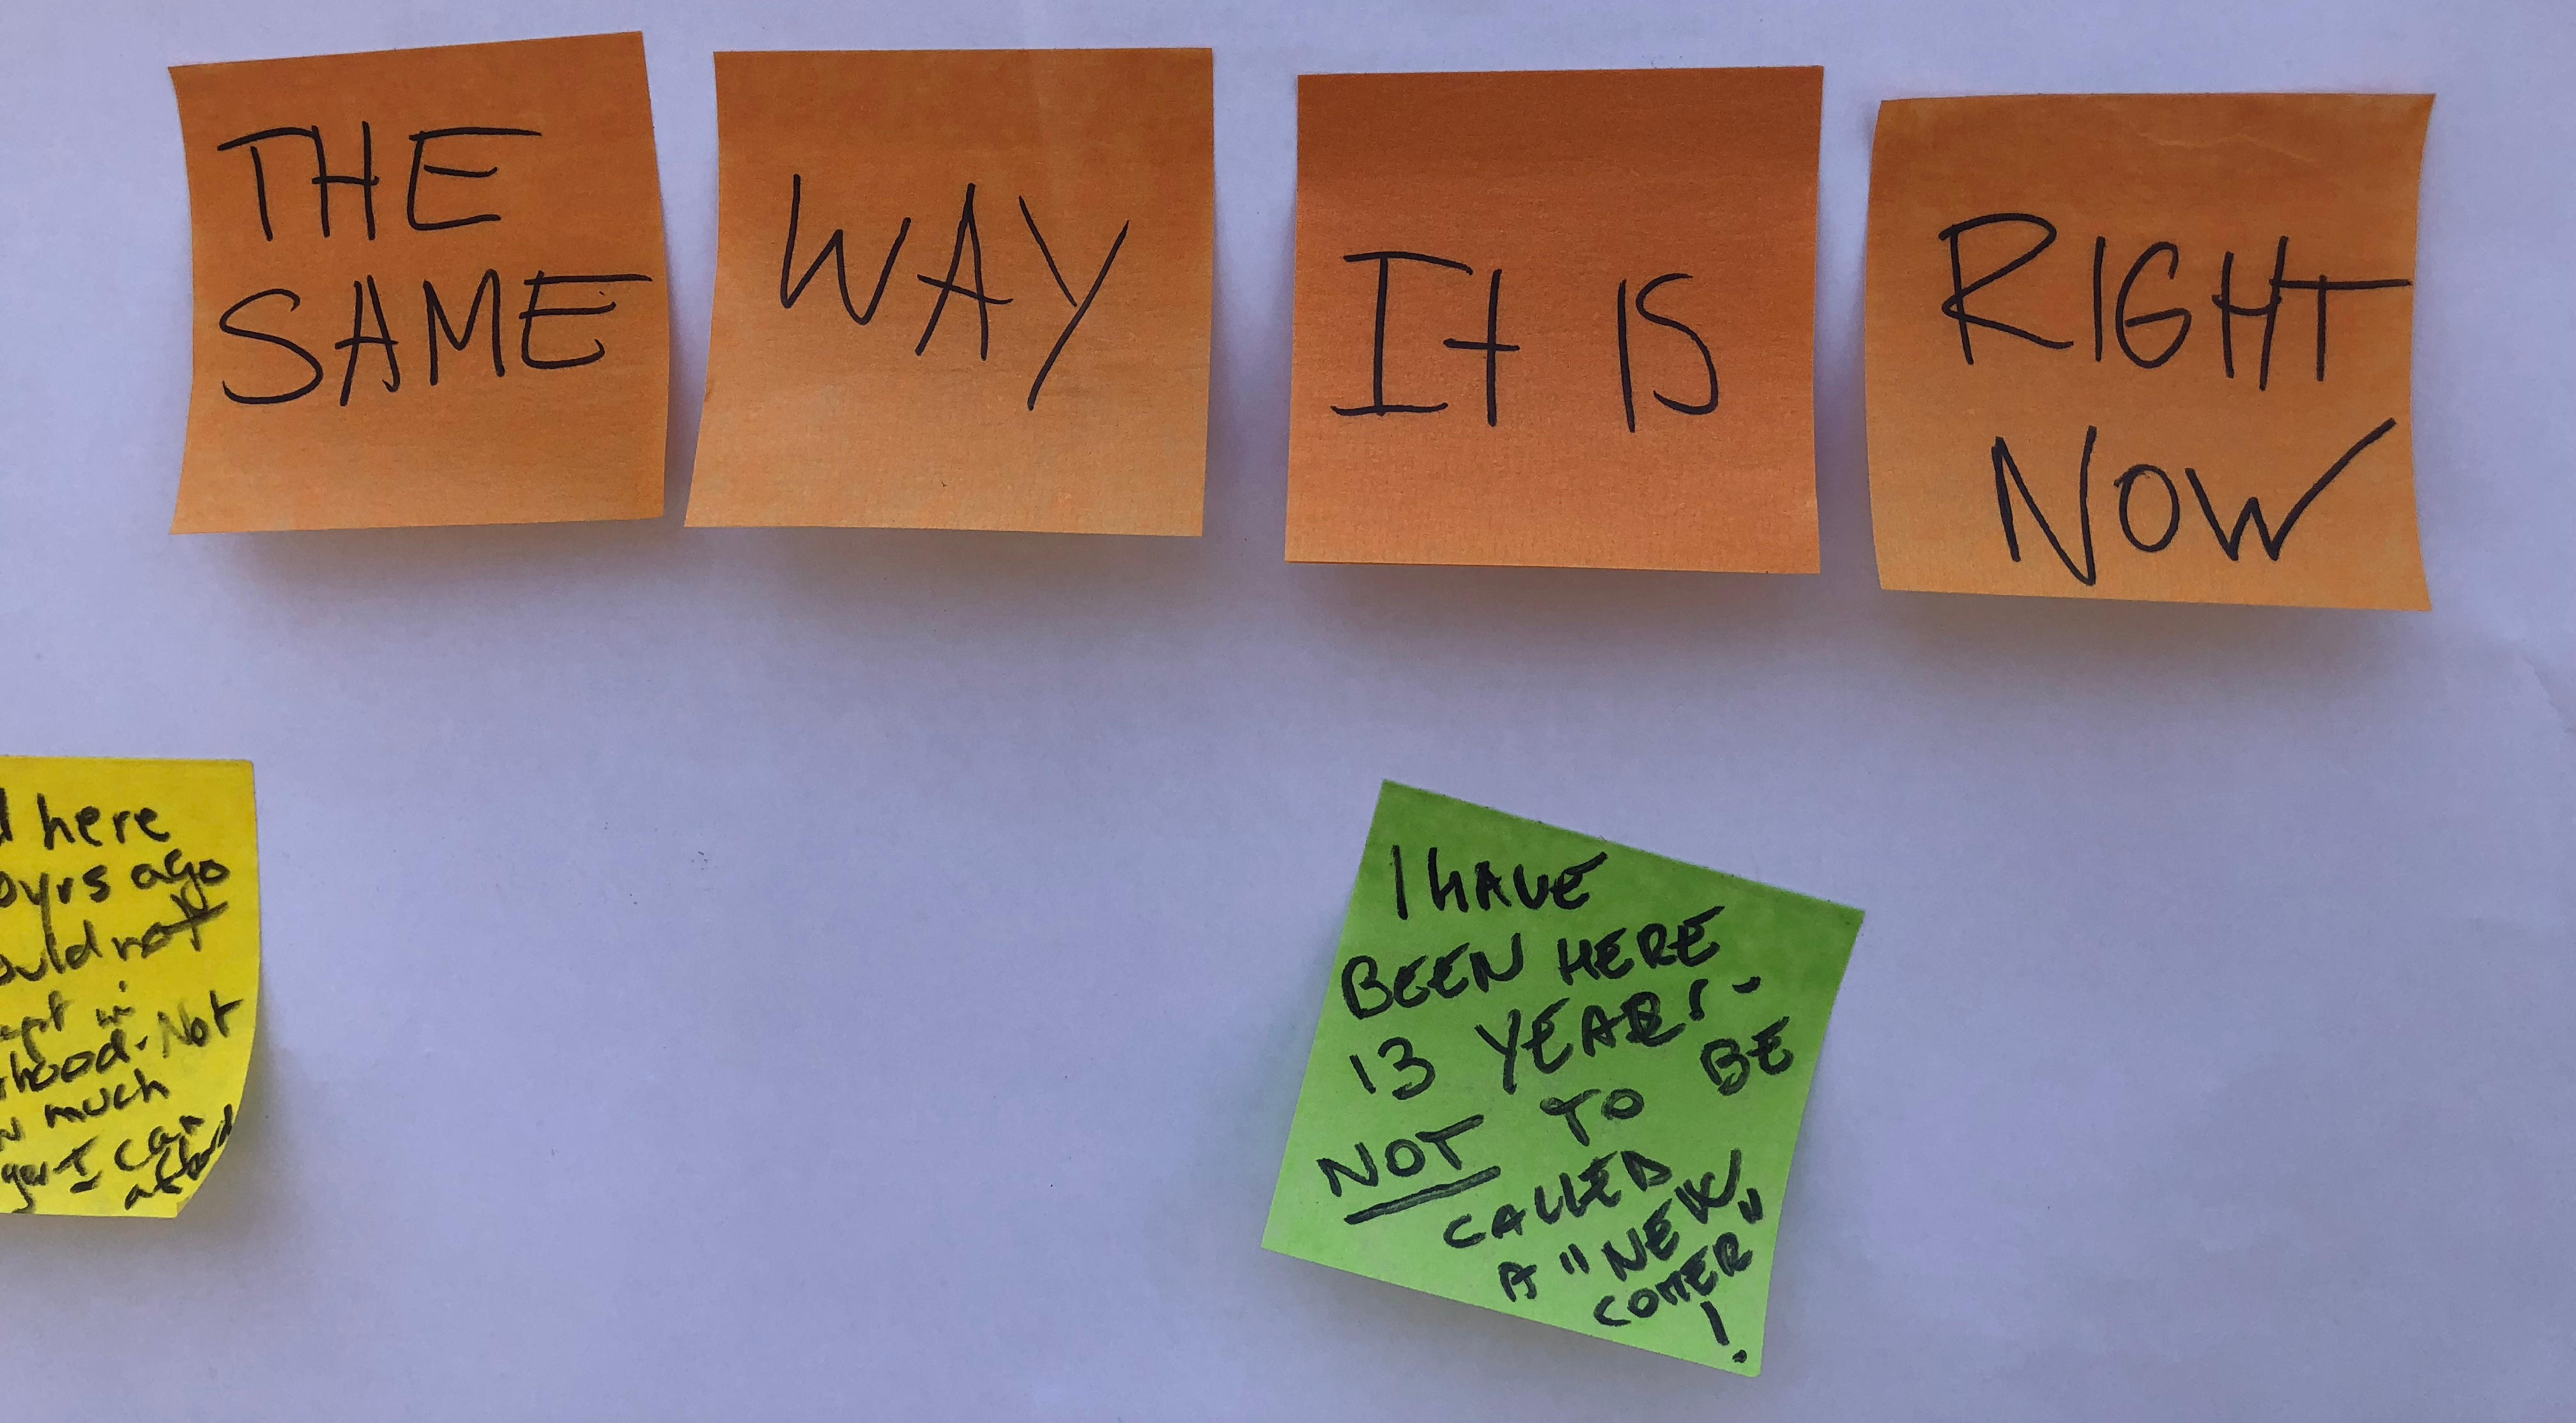 THE
SAME
WAY
It IS
RIGHT
NOW
here
yrs ago
not
Not
much
I can
afford
I HAVE
BEEN HERE
13 YEARS -
NOT TO BE
CALLED
A "NEW
COMER"
!